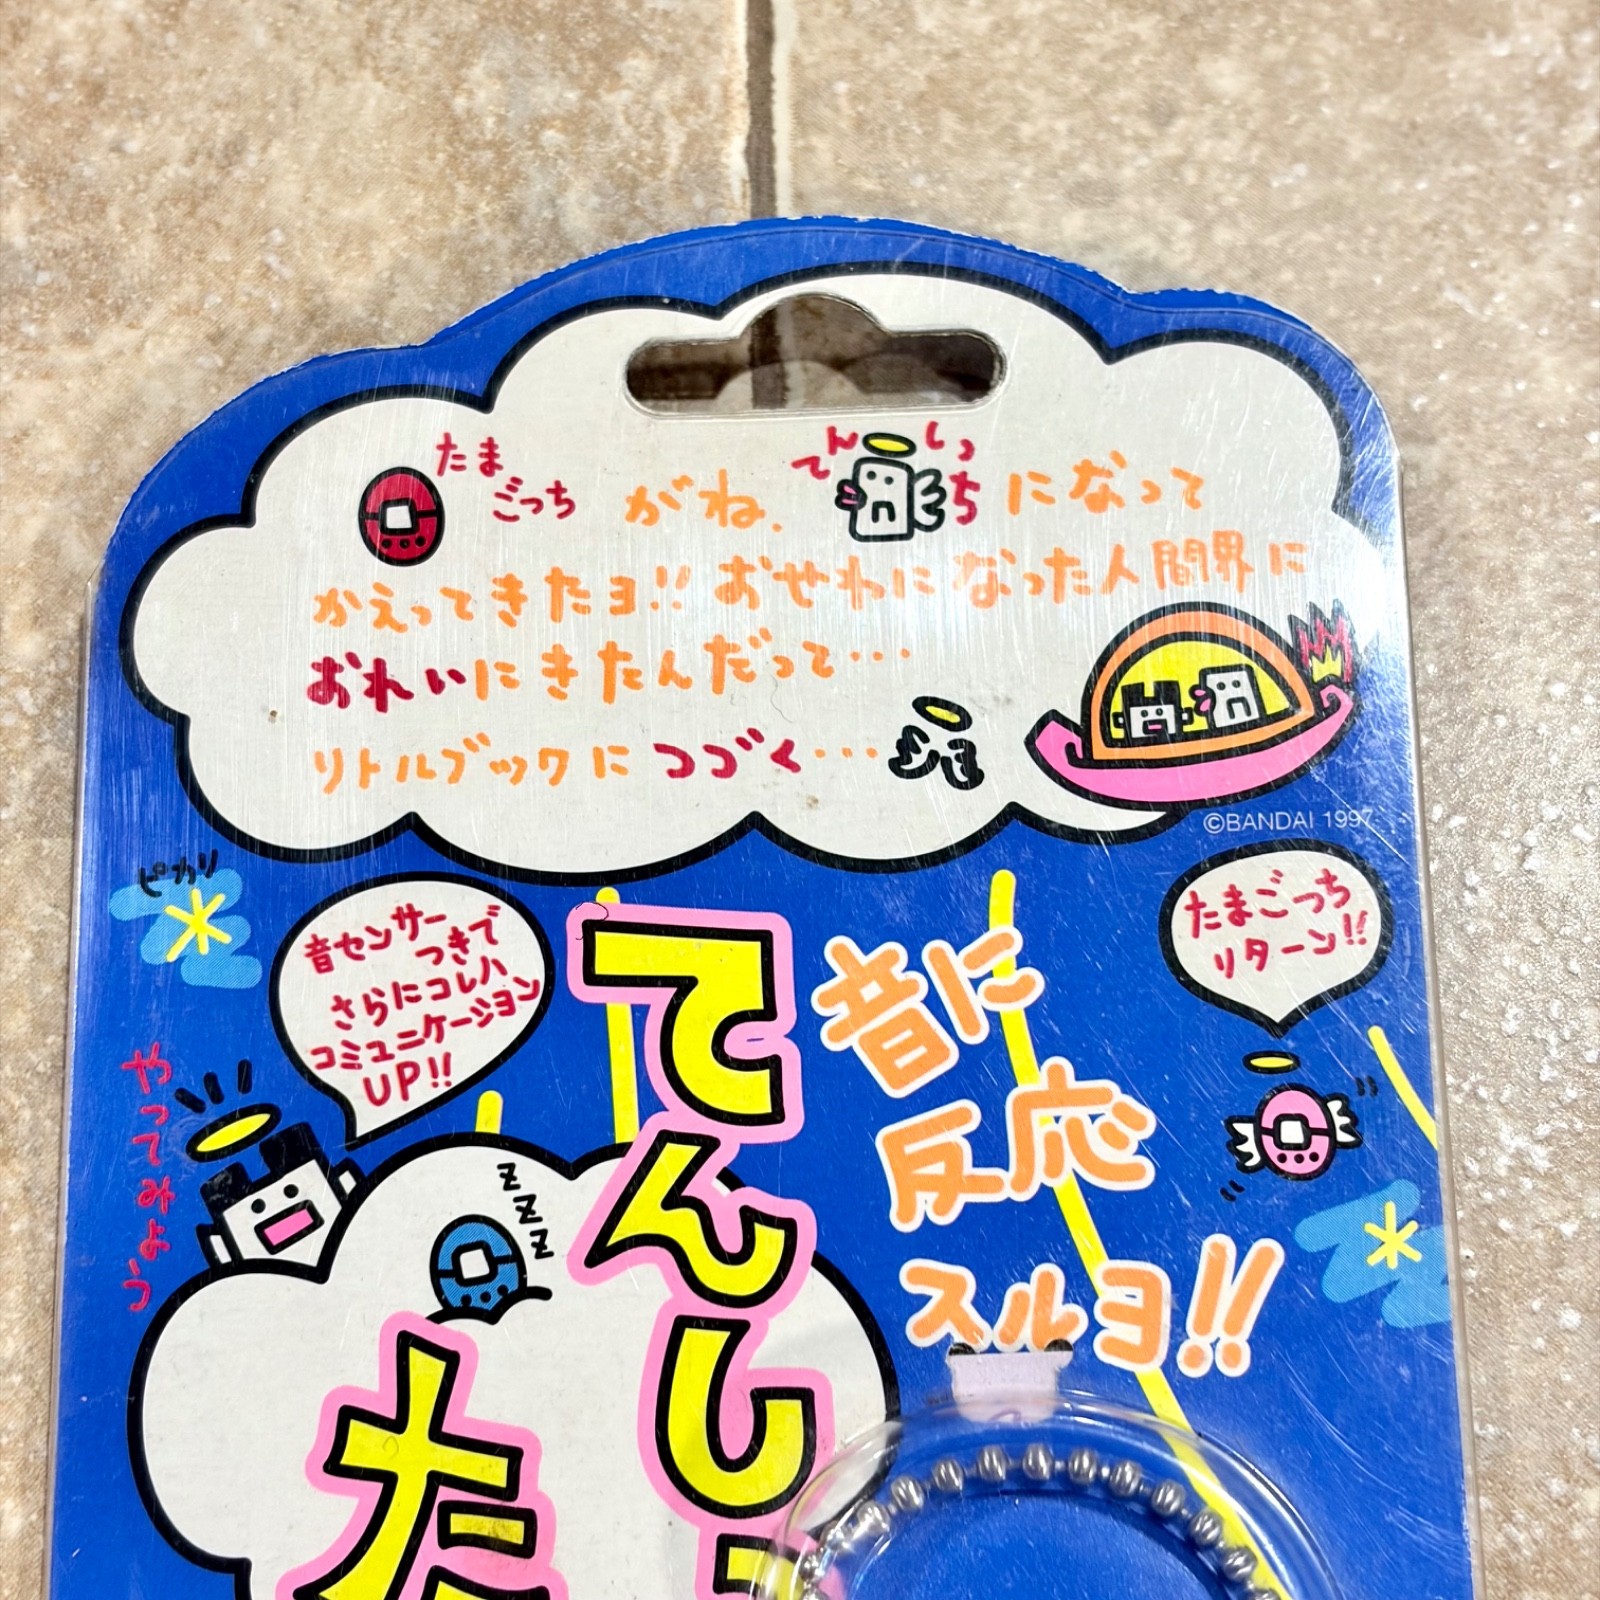 たまごっち がね、てんしっちになって
かえってきたヨ!! おせわになった人間界に
おれいにきたんだって…
リトルブックにつづく…
ジョ
©BANDAI 1997
ピカリ
音センサー
つきで
さらにコレハ
コミュニケーション
UP!!
たまごっち
リターン!!
やってみよう
てんしっ
音に
反応
スルヨ!!
zzz
た